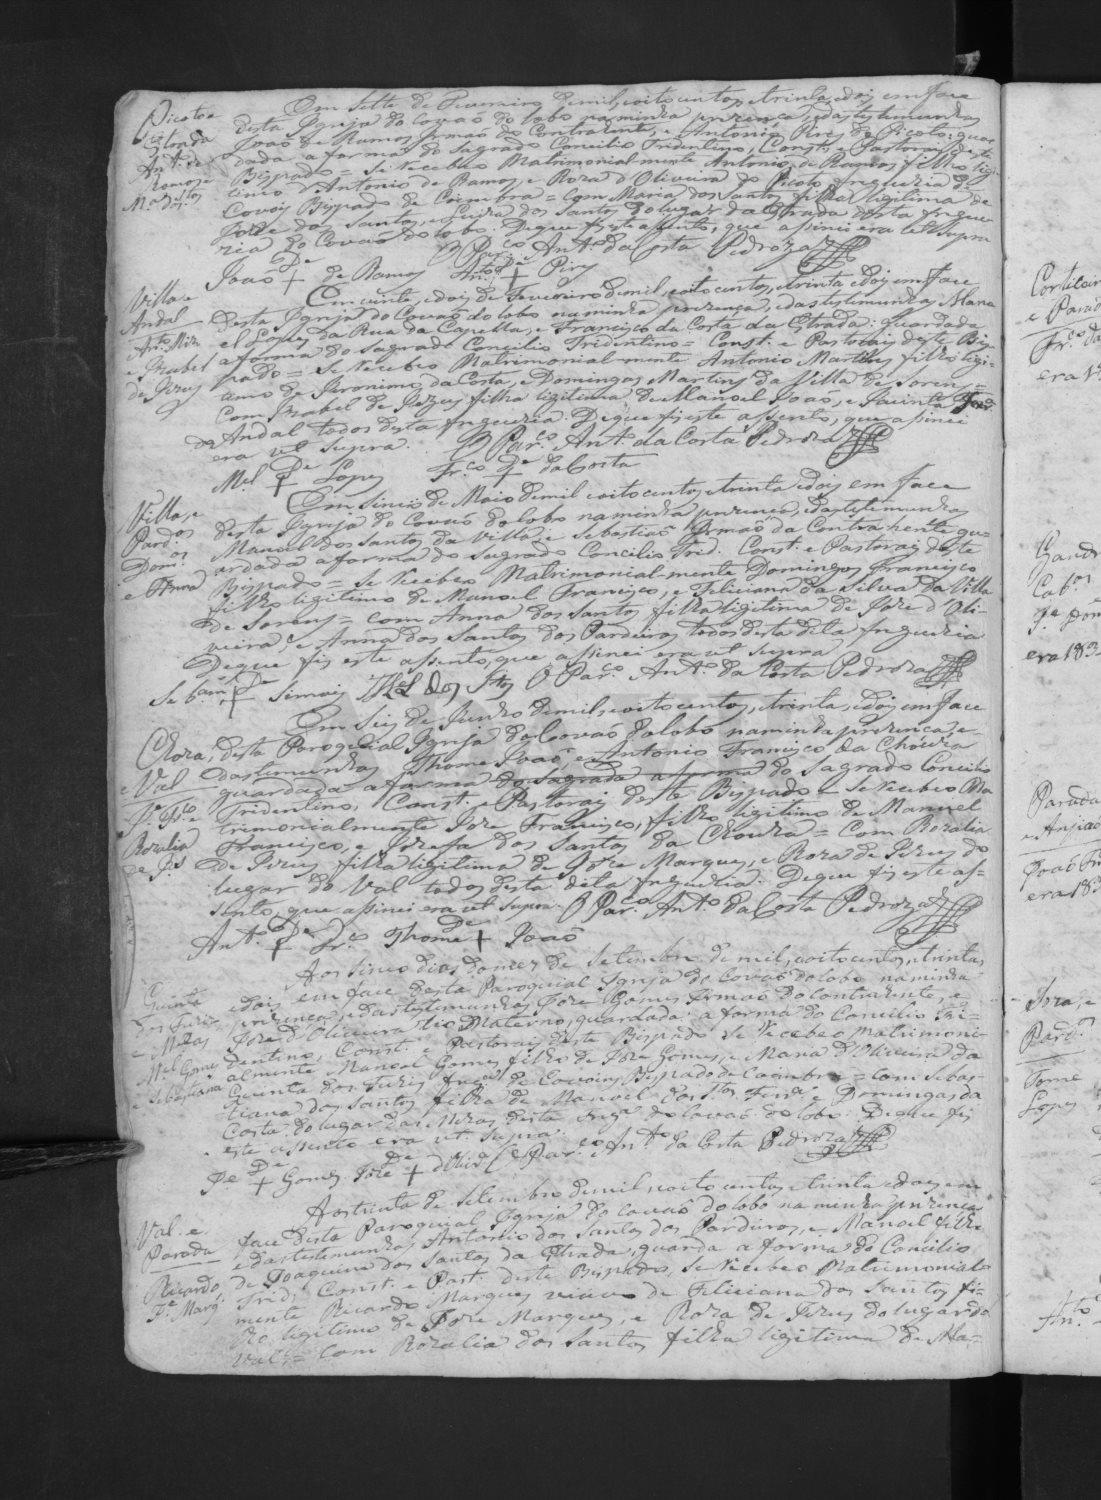 Picoto e
Estrada
Ant.º de
Ramos e
M.ª dos S.tos
Em sette de Fevereiro de mil, oito centos, e trinta, e dois em face
desta Igreja do Covaõ do lobo na minha prezença, e das testemunhas
Joaõ de Ramos Irmaõ do Contrahente, e Antonio Pires do Picoto: guar
dada a forma do Sagrado Concilio Tridentino, Const. e Pastorais deste
Bispado = se recebeo Matrimonial-mente Antonio de Ramos filho legi
timo d'Antonio de Ramos, e Roza d'Oliveira do Picoto freguezia de
Covois Bispado de Coimbra = com Maria dos Santos filha legitima de
Joze dos Santos, e Luiza dos Santos do lugar da Estrada desta fregue
zia do Covaõ do lobo. De que fiz este assento, que assinei era ut supra
O Par.co Ant.º da Costa Pedroza
De
Joaõ + de Ramos Ant.º + Pires
Villa e
Andal
Ant.º Miz
e Izabel
de Jezus
Em vinte, e dois de Fevereiro de mil, oito centos, e trinta e dois em face
desta Igreja do Covaõ do lobo na minha prezença, e das testemunhas Mano
el Lopes da Rua da Capella, e Francisco da Costa da Estrada: guardada
a forma do Sagrado Concilio Tridentino = Const. e Pastorais deste Bis
pado = se recebeo Matrimonial-mente Antonio Martins filho legi
timo de Jeronimo da Costa, e Domingas Martins da Villa de Sorens =
Com Izabel de Jezus filha legitima de Manoel Joaõ, e Jacinta
de Andal todos desta freguezia. De que fiz este assento, que assinei
era ut supra. O Par.co Ant.º da Costa Pedroza
M.el + Lopes Fr.co + da Costa
Villa, e
Pard.os
Dom.os
e Anna
Em sinco de Maio de mil oito centos, e trinta e dois em face
desta Igreja do Covaõ do lobo na minha prezença, e das testemunhas
Manoel dos Santos da Villa, e Sebastiaõ Irmaõ da Contrahente gu-
ardada a forma do Sagrado Concilio Trid. Const. e Pastorais deste
Bispado = se recebeo Matrimonial-mente Domingos Francisco
filho legitimo de Manoel Francisco, e Feliciana da Silva da Villa
de Sorens = com Anna dos Santos filha legitima de Joze d'Oli
veira, e Anna dos Santos dos Pardeiros todos desta dita freguezia
De que fiz este assento, que assinei era ut supra
Sebam + Simois M.el dos S.tos O Par.co Ant.º da Costa Pedroza
Choza,
e Val
J.e Fr.co e
Rozalia
de J.es
Em seis de Junho de mil, oito centos, e trinta, e dois em face
desta Paroquial Igreja do Covaõ do lobo na minha prezença, e
das testemunhas Thome Joaõ, e Antonio Francisco da Choiza
guardada a forma do Sagrado a forma do Sagrado Concilio
Tridentino, Const. e Pastorais deste Bispado = se recebeo Ma
trimonialmente Joze Francisco, filho legitimo de Manuel
Francisco, e Jozefa dos Santos da Choiza = Com Rozalia
de Jezus filha legitima de Joze Marques, e Roza de Jezus do
lugar do Val todos desta dita freguezia. De que fiz este as-
sento, que assinei era ut supra. O Par.co Ant.º da Costa Pedroza
Ant.º + Fr.co Thome + Joaõ
Quinta
M.el Gomes
e Sebastiana
Aos sinco dias do mez de Setembro de mil, oito centos, e trinta
e dois em face desta Paroquial Igreja do Covaõ do lobo na minha
prezença, e das testemunhas Joze Gomes Irmaõ do Contrahente, e
Joze d'Oliveira tio Materno, guardada a forma do Concilio Tri-
dentino, Const. e Pastorais deste Bispado se recebeo Matrimoni-
almente Manoel Gomes filho de Joze Gomes, e Maria d'Oliveira da
Quinta dos Freg.a de Covoins Bispado de Coimbra = com Sebas-
tiana dos Santos filha de Manoel dos S.tos e Domingas da
Costa do lugar das Mezas desta freg.a do Covaõ do lobo. De que fiz
este assento era ut supra.
J.e + Gomes Joze + d'Oliv.ra O Par.co Ant.º da Costa Pedroza
Val e
Parada
Ricardo,
J.e Marq.
Aos trinta de Setembro de mil, oito centos e trinta e dois em
face desta Paroquial Igreja do Covaõ do lobo na minha prezença
e das testemunhas Antonio dos Santos dos Pardeiros, e Manoel filho
de Joaquina dos Santos da Estrada, guarda a forma do Concilio
Trid. Const. e Past. deste Bispado, se recebeo Matrimonial-
mente Ricardo Marques viuvo de Feliciana dos Santos fi-
lho legitimo de Joze Marques, e Roza de Jezus do lugar do
Val = Com Rozalia dos Santos filha legitima de Ma-
e Parad
Fr.co da
era 18
Gandr
Cab.os
era 183
Parada
e Anjiaõ
Joaõ Fr
era 183
Pard.os
Tome
Lopes